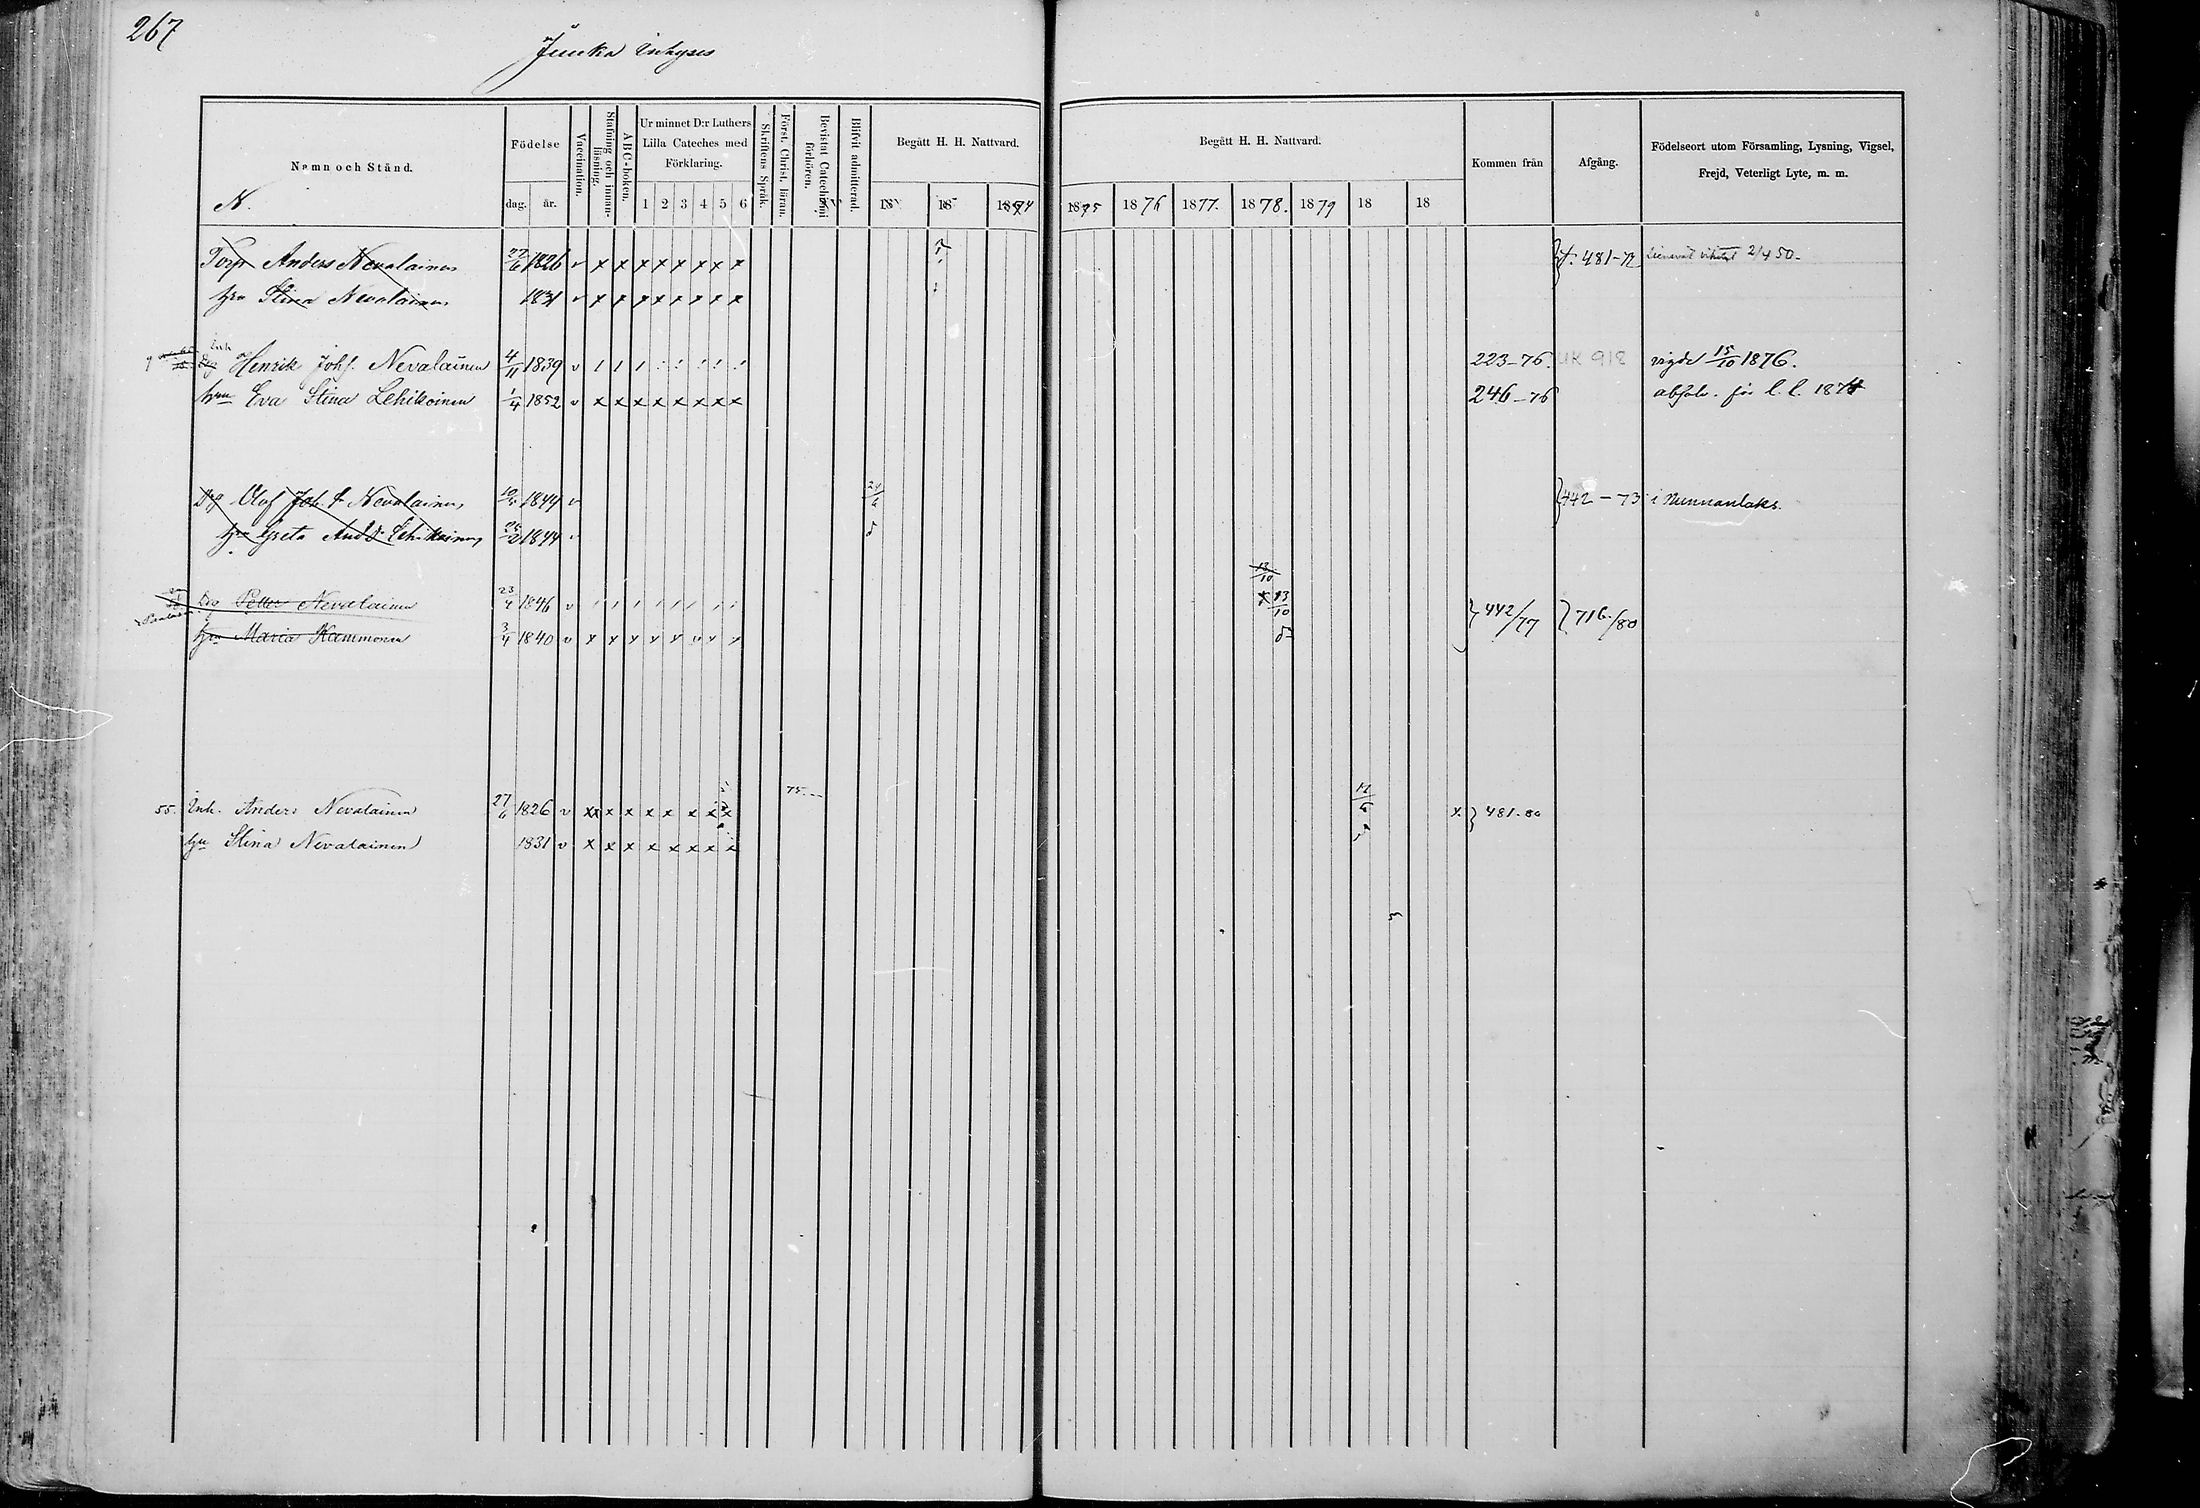 267
Juuka inhyses
Namn och Stånd.
Födelse
dag. år.
Vaccination.
Stafning och innan-
läsning.
ABC-boken.
Ur minnet D:r Luthers
Lilla Cateches med
Förklaring.
1 2 3 4 5 6
Skriftens Språk.
Först. Christ. läran.
Bevistat Catechismi
förhören.
Blifvit admitterad.
Begått H. H. Nattvard.
18 18 1874
Begått H. H. Nattvard.
1875 1876 1877. 1878. 1879 18 18
Kommen från
Afgång.
Födelseort utom Församling, Lysning, Vigsel,
Frejd, Veterligt Lyte, m. m.
N.
Torp Anders Nevalainen 27/6 1826 v x x x x x x x x 481-72 2/4 50-
hru Stina Nevalainen 1831 v x x x x x x x x
Inh
Henrik Johs. Nevalainen 4/11 1839 v 223-76. UK 918 vigde 15/10 1876.
hru Eva Stina Lehikoinen 1/4 1852 v x x x x x x x x 246-76 absolv. för l. l. 1874
Drg Olof Joh. s. Nevalainen 1844 v 24/6 442-73 i Nunnanlaks.
hru Greta And. dr Lehikoinen 1844
13/10
Drg Petter Nevalainen 23/4 1846 v x 13/10 442/77 716/80
hru Maria Kammonen 3/4 1840 v x x x x x v x x
75
55. Inh. Anders Nevalainen 27/6 1826 v xx x x x x x x x x 481-80
hru Stina Nevalainen 1831 v x x x x x x x x